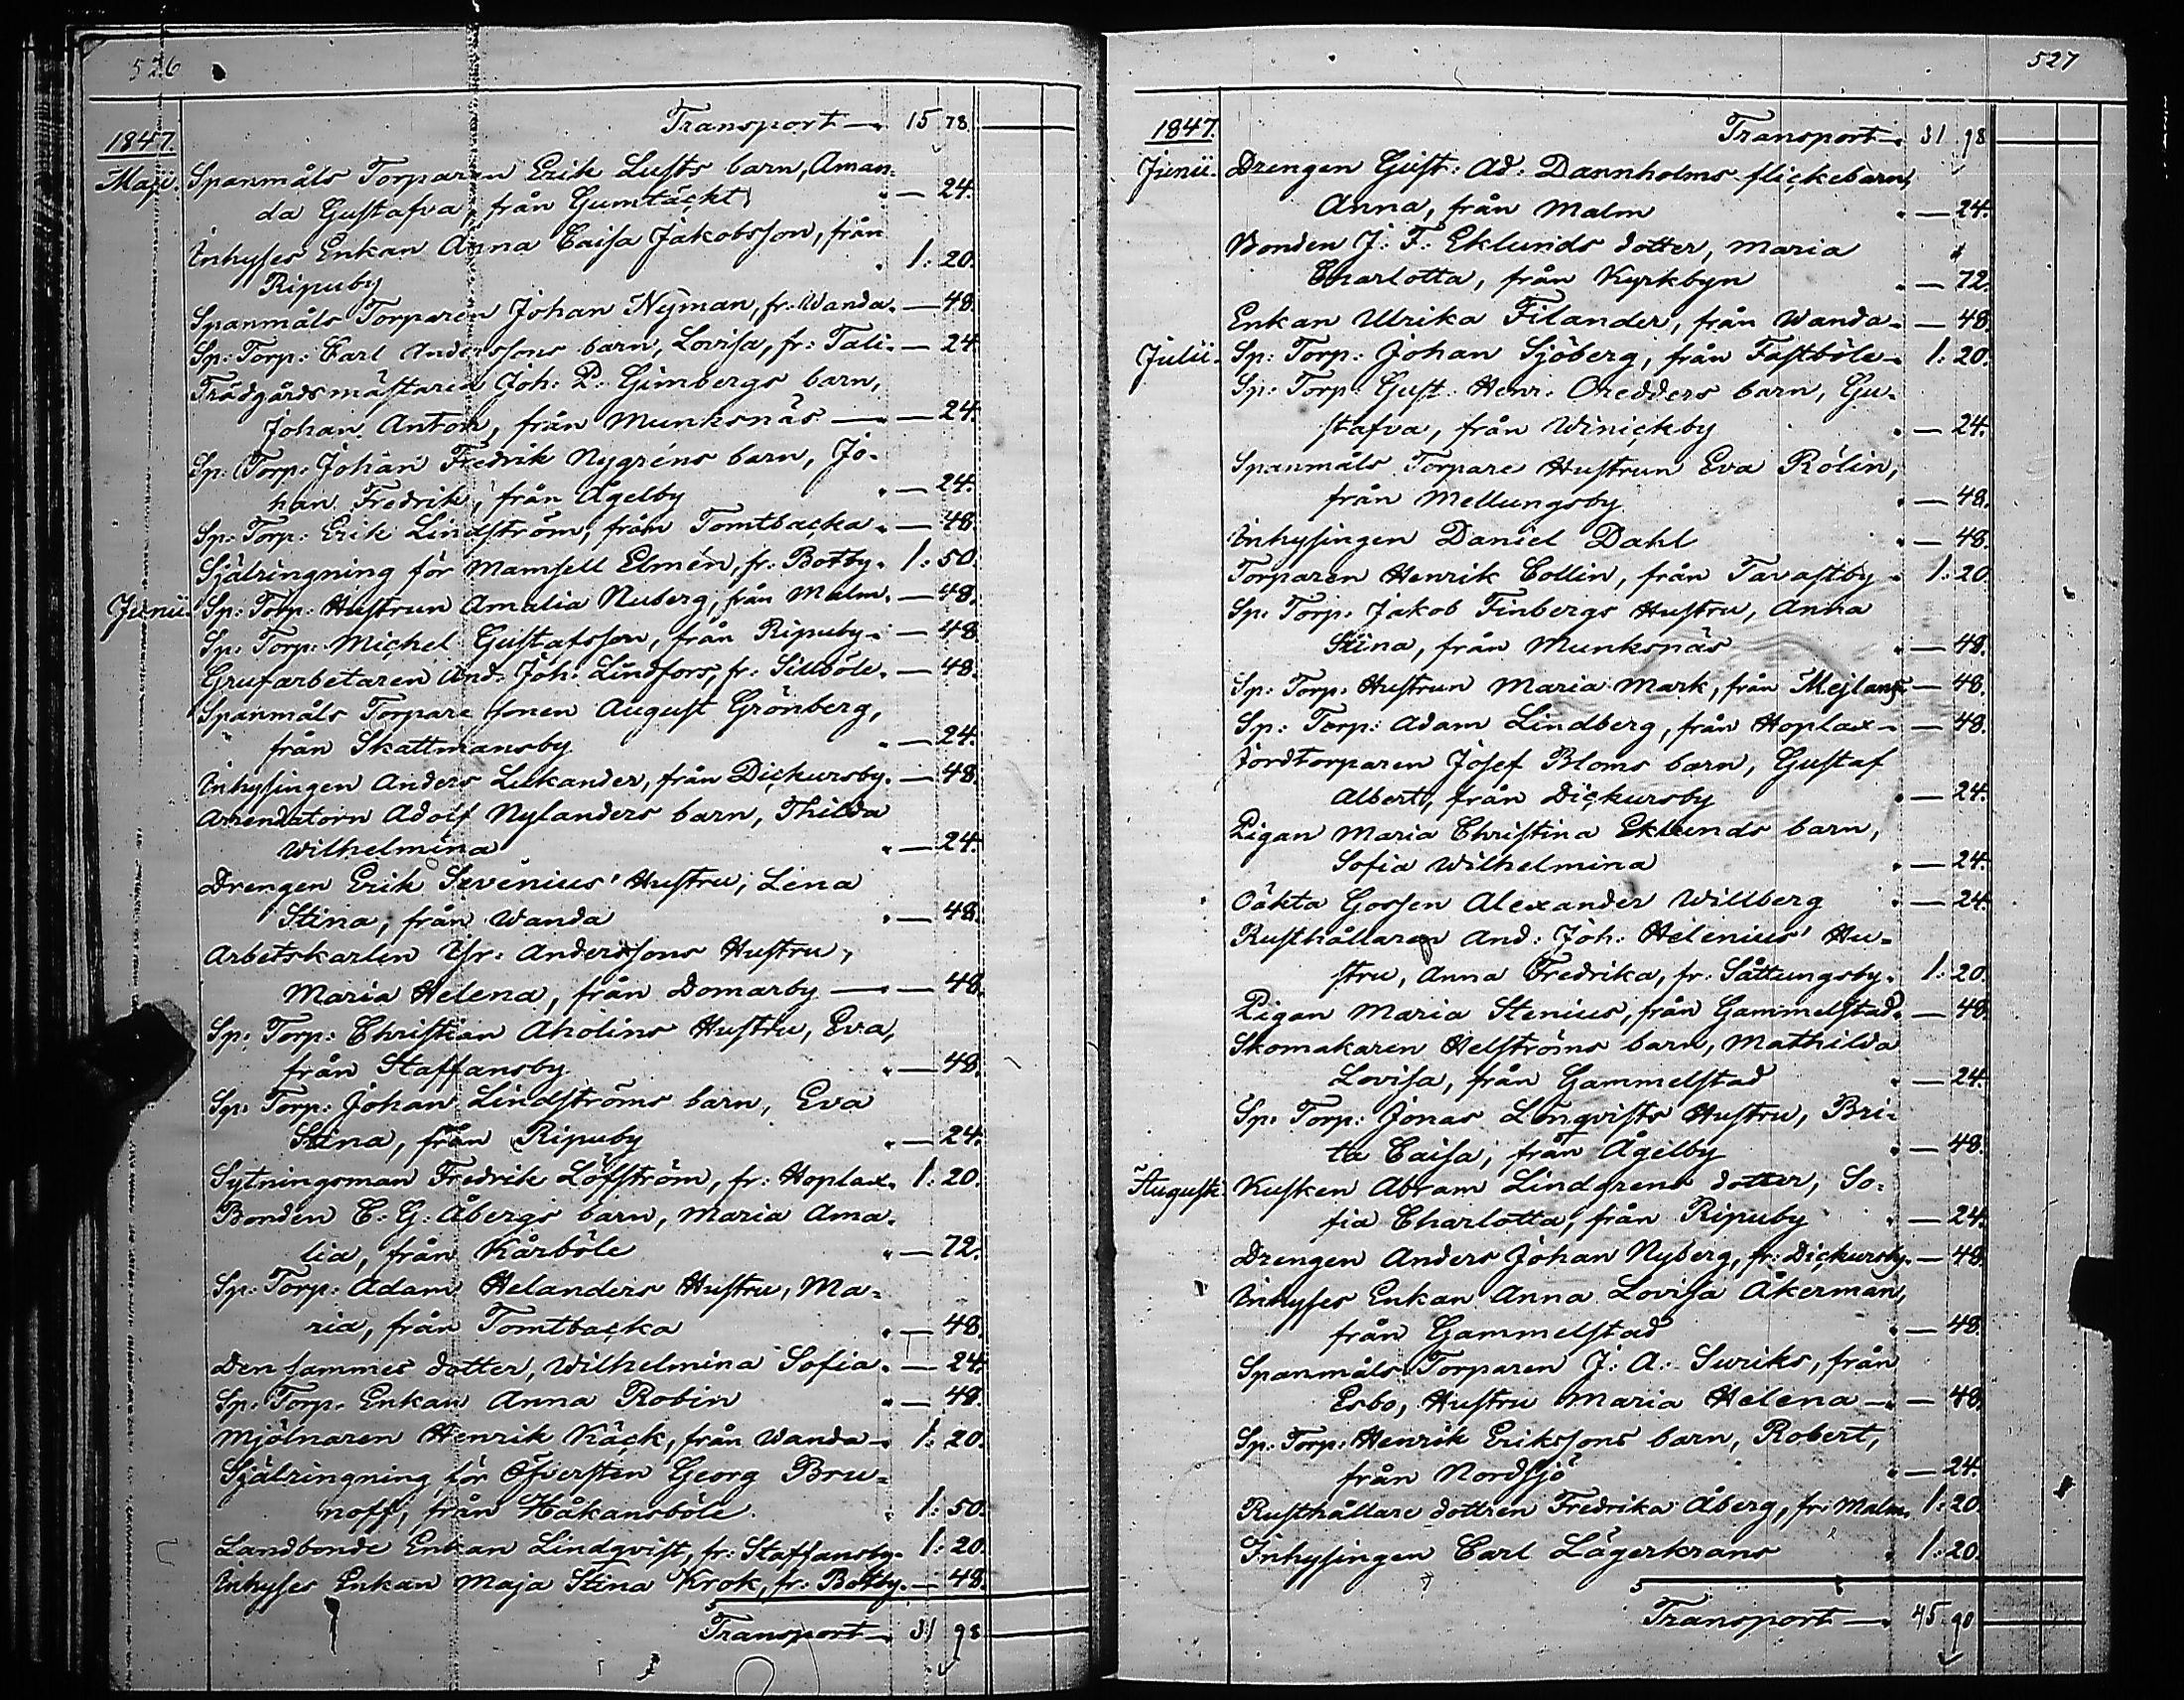 526
Transport — 15 78.
1847.
Maji. Spanmåls Torparen Erik Lusts barn, Aman-
da Gustafva, från Gumtäckt — 24.
Inhyses Enkan Anna Caisa Jakobsson, från
Ripuby 1: 20.
Spanmåls Torparen Johan Nyman, fr: Wanda. — 48.
Sp: Torp: Carl Anderssons barn, Lovisa, fr: Tali. — 24
Trädgårdsmästaren Joh: P. Gimbergs barn,
Johan Anton, från Munksnäs — 24.
Sp: Torp: Johan Fredrik Nygréns barn, Jo-
han Fredrik, från Ågelby — 24.
Sp: Torp: Erik Lindström, från Tomtbacka. — 48
Själringning för Mamsell Elmén, fr: Botby. 1: 50.
Junii. Sp: Torp: Hustrun Amalia Nuberg, från Malm. — 48.
Sp: Torp: Michel Gustafsson, från Ripuby. — 48
Grufarbetaren And: Joh: Lindfors, fr: Sillböle. — 48.
Spanmåls Torpare sonen August Grönberg,
från Skattmansby — 24.
Inhysingen Anders Lukander, från Dickursby. — 48.
Arrendatorn Adolf Nylanders barn, Thilda
Wilhelmina — 24.
Drengen Erik Sevenius' Hustru, Lena
Stina, från Wanda — 48.
Arbetskarlen Isr: Anderssons Hustru,
Maria Helena, från Domarby — 48.
Sp: Torp: Christian Aholins Hustru, Eva,
från Staffansby — 48.
Sp: Torp: Johan Lindströms barn, Eva
Stina, från Ripuby — 24.
Sytningsman Fredrik Löfström, fr: Hoplax. 1: 20.
Bonden C: G: Åbergs barn, Maria Ama-
lia, från Kårböle — 72.
Sp: Torp: Adam Helanders Hustru, Ma-
ria, från Tomtbacka — 48.
Den sammes dotter, Wilhelmina Sofia. — 24.
Sp: Torp. Enkan Anna Robin — 48.
Mjölnaren Henrik Käck, från Wanda — 1: 20.
Själringning för Öfversten Georg Bru-
noff, från Håkansböle. 1: 50.
Landbonde Enkan Lindqvist, fr: Staffansby. 1: 20.
Inhyses Enkan Maja Stina Krok, fr: Botby. — 48.
Transport — 31 98
527
1847. Transport — 31. 98
Junii. Drengen Gust: Ad: Dannholms flickebarn,
Anna, från Malm — 24.
Bonden J: F: Eklunds dotter, Maria
Charlotta, från Kyrkbyn — 72.
Enkan Ulrika Filander, från Wanda. — 48.
Julii. Sp: Torp: Johan Sjöberg, från Fastböle — 1: 20.
Sp: Torp: Gust: Henr: Oredders barn, Gu-
stafva, från Winickby — 24.
Spanmåls Torpare Hustrun Eva Rólin,
från Mellungsby — 48.
Inhysingen Daniel Dahl — 48.
Torparen Henrik Collin, från Tavastby 1: 20.
Sp: Torp: Jakob Finbergs Hustru, Anna
Stina, från Munksnäs — 48.
Sp: Torp: Hustrun Maria Mark, från Mejlans — 48.
Sp: Torp: Adam Lindberg, från Hoplax — 48.
Jordtorparen Josef Bloms barn, Gustaf
Albert, från Dickursby — 24.
Pigan Maria Christina Eklunds barn,
Sofia Wilhelmina — 24.
Oäkta Gossen Alexander Willberg — 24.
Rusthållaren And: Joh: Helenius' Hu-
stru, Anna Fredrika, fr: Såttungsby. 1: 20.
Pigan Maria Stenius, från Gammelstad. — 48.
Skomakaren Helströms barn, Mathilda
Lovisa, från Gammelstad — 24.
Sp: Torp: Jonas Lönqvists Hustru, Bri-
ta Caisa, från Ågelby — 48.
Augusti. Kusken Abram Lindgrens dotter, So-
fia Charlotta, från Ripuby — 24.
Drengen Anders Johan Nyberg, fr: Dickursby. — 48.
Inhyses Enkan Anna Lovisa Åkerman,
från Gammelstad — 48.
Spanmåls Torparen J: A: Suriks, från
Esbo, Hustru Maria Helena — 48.
Sp: Torp: Henrik Erikssons barn, Robert,
från Nordsjö — 24.
Rusthållare dottren Fredrika Åberg, fr: Malm. 1: 20.
Inhysingen Carl Lägerkrans 1: 20.
Transport — 45. 90